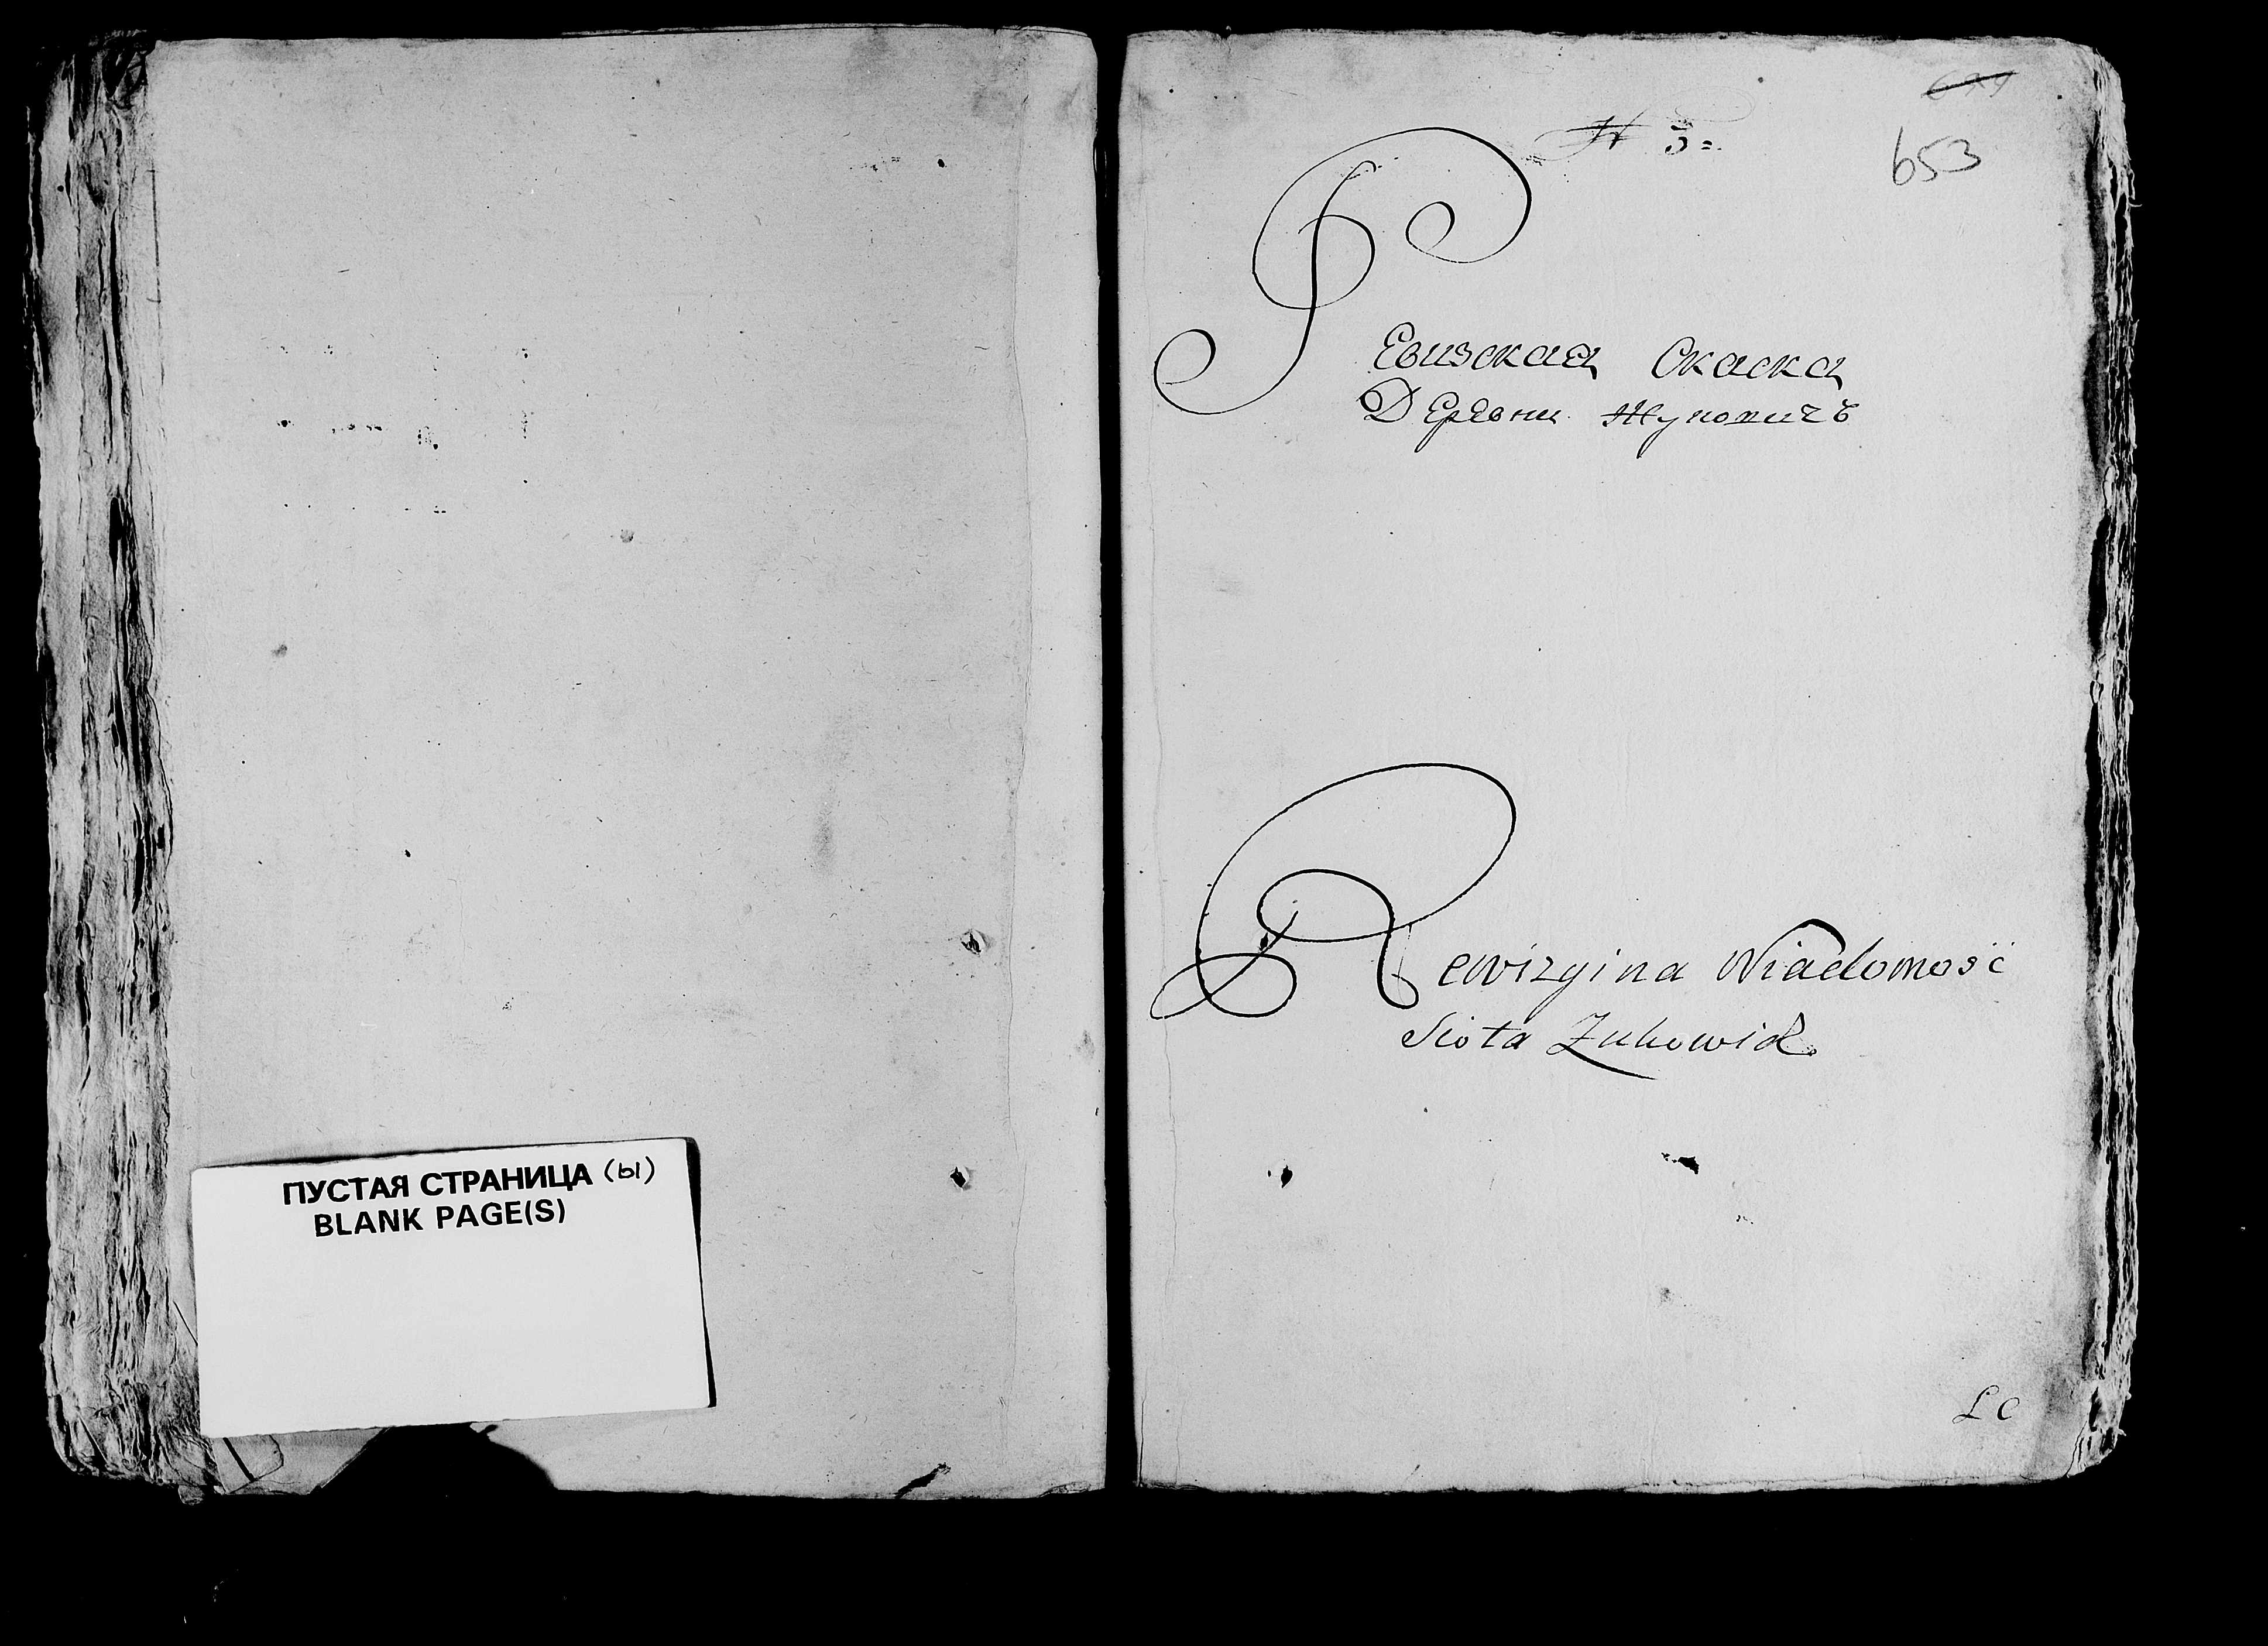 ПУСТАЯ СТРАНИЦА (ы)
BLANK PAGE(S)
N 3=
653
Ревизская Скаска
Деревни Жуковичъ
Rewizyina Wiadomość
Sioła Zukowicz
LC